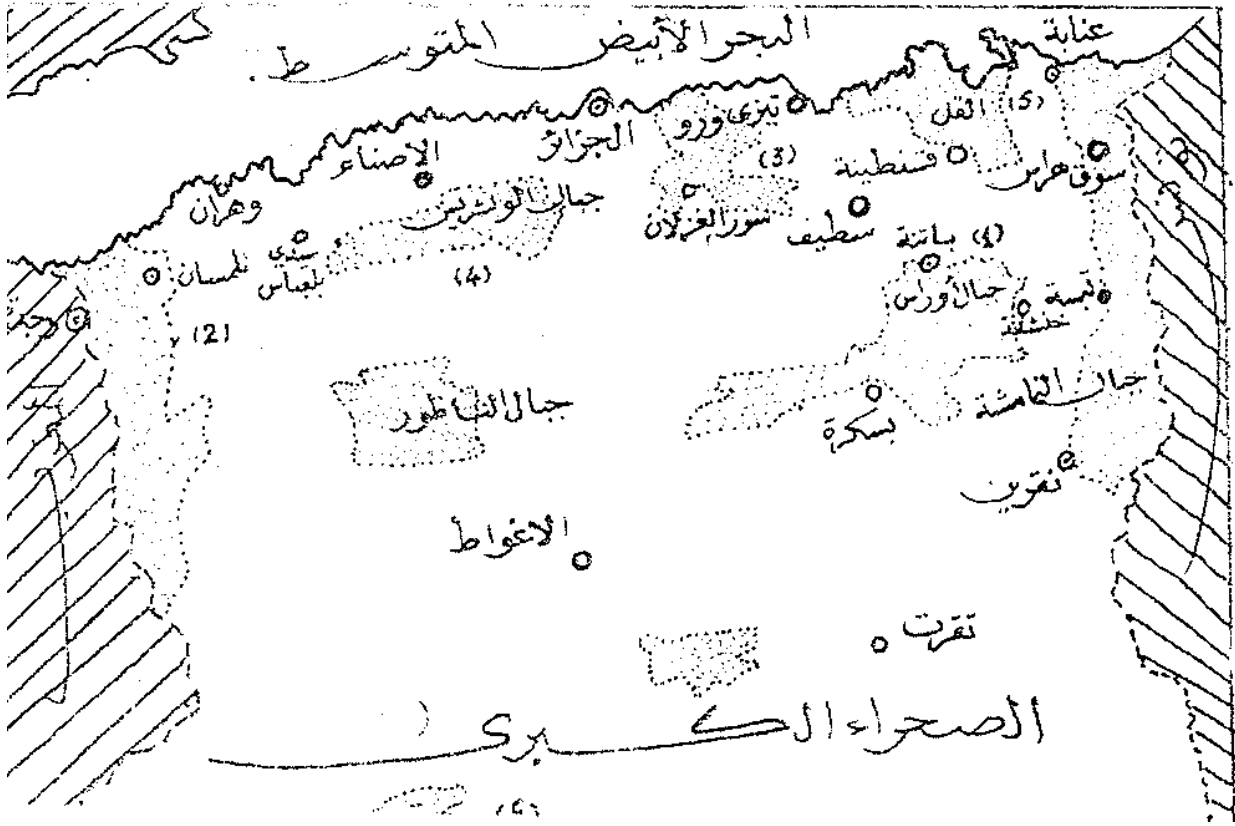 البحر الأبيض المتوسط.
عنابة
القل
(5)
تيزي وزو
الجزائر
الاصنام
(3)
قسنطينة
سوق هراس
وهران
جبال الونشريس
سور الغزلان
سطيف
باتنة
(1)
سيدي
بلعباس
تلمسان
(4)
جبال أوراس
تبسة
خنشلة
وجدة
(2)
جبال الناظور
بسكرة
جبال النمامشة
نقرين
الاغواط
تقرت
الصحراء الكبرى